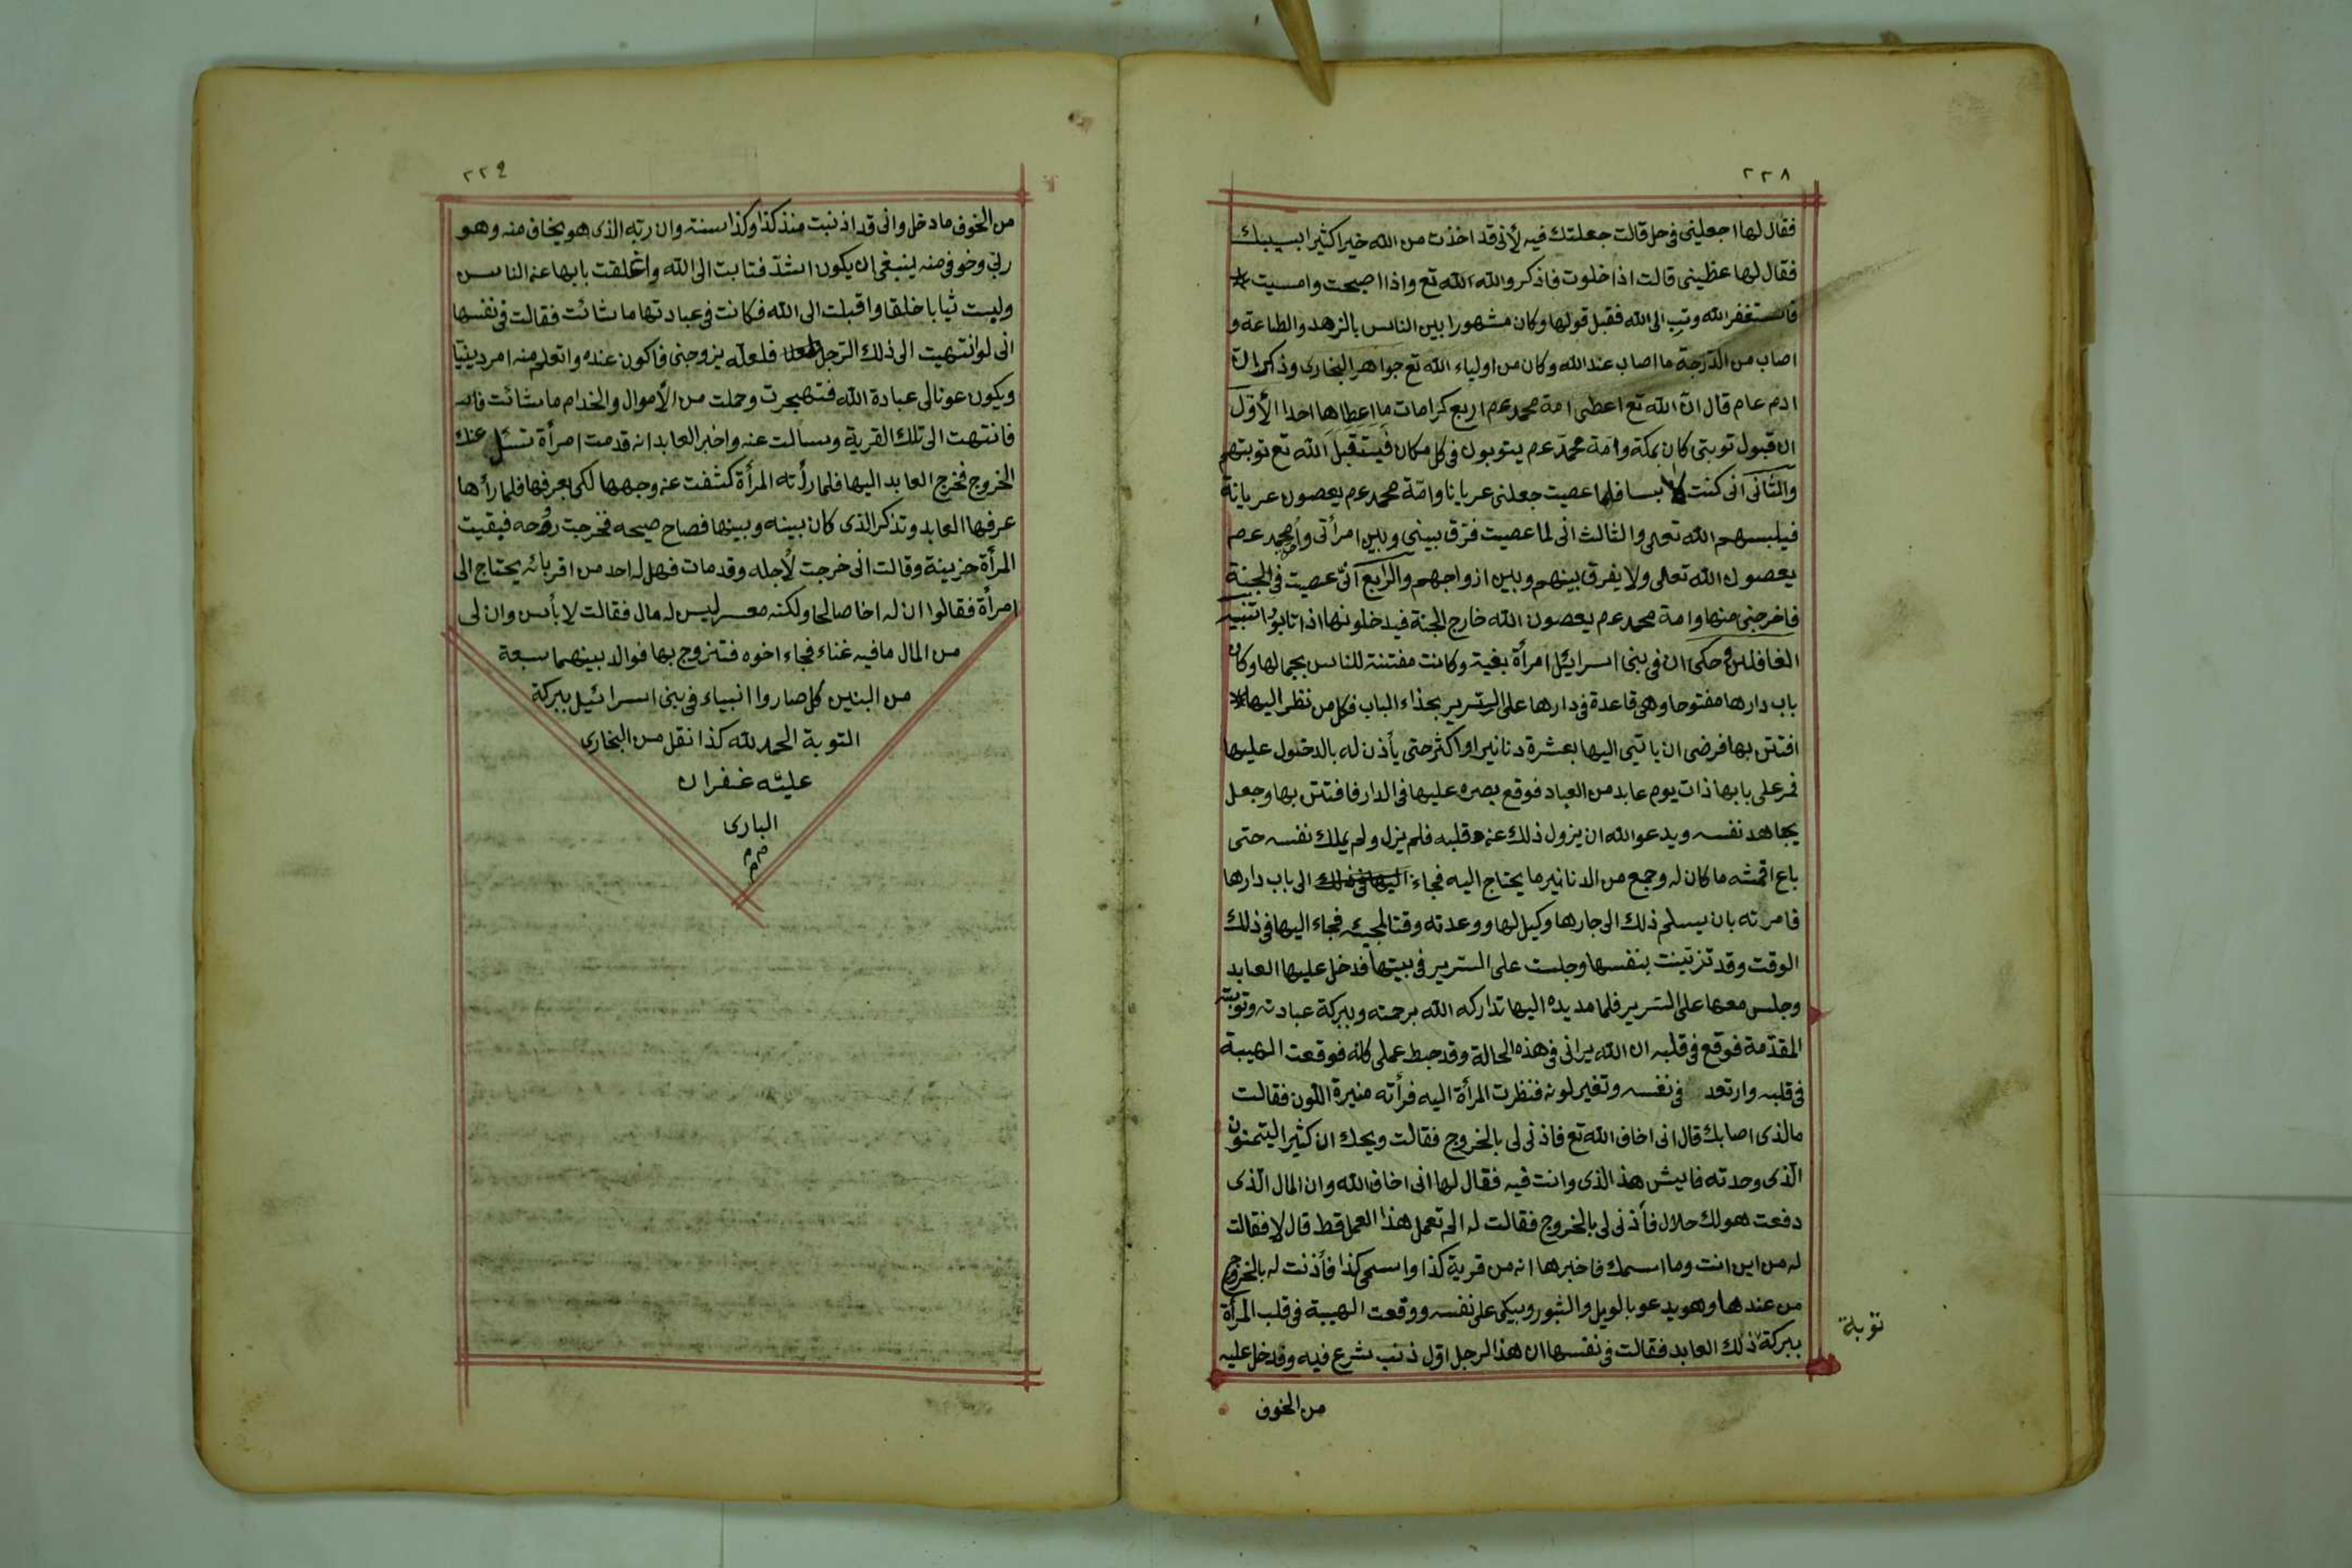 ٢٢٨
فقال لها اجعلينى فى حل قالت جعلتك فيه لأنى قد اخذت من الله خيرا كثيرا بسببك
فقال لها عظينى قالت اذا خلوت فاذكر والله الله تع واذا اصبحت وامسيت *
فاستغفر الله وتب الى الله فقبل قولها وكان مشهورا بين الناس بالزهد والطاعة و
اصاب من الدرجة ما اصاب عند الله وكان من اولياء الله تع جواهر البخارى وذكر ان
ادم عام قال ان الله تع اعطى امة محمد عم اربع كرامات ما اعطاها احدا الأول
ان قبول توبتى كان بمكة وامة محمد عم يتوبون فى كل مكان فيتقبل الله تع توبتهم
والثانى انى كنت لابسا فلما عصيت جعلنى عريانا وامة محمد عم يعصون عريانة
فيلبسهم الله تعالى والثالث انى لما عصيت فرق بينى وبين امرأتى وامة محمد عم
يعصون الله تعالى ولا يفرق بينهم وبين ازواجهم والرابع انى عصيت فى الجنة
فاخرجنى منها وامة محمد عم يعصون الله خارج الجنة فيدخلونها اذا تابوا تنبيه
الغافلين وحكى ان فى بنى اسرائيل امرأة بغية وكانت مفتنة للناس بجمالها وكان
باب دارها مفتوحا وهى قاعدة فى دارها على السرير بحذاء الباب فكل من نظر اليها *
افتتن بها فرضى ان ياتى اليها بعشرة دنانير او اكثر حتى يأذن له بالدخول عليها
فمر على بابها ذات يوم عابد من العباد فوقع بصره عليها فى الدار فافتتن بها وجعل
يجاهد نفسه ويدعو الله ان يزول ذلك عن قلبه فلم يزل ولم يملك نفسه حتى
باع اقمشه ما كان له وجمع من الدنانير ما يحتاج اليه فجاء اليها فى ذلك الى باب دارها
فامرته بان يسلم ذلك الى جارها وكيل لها ووعدته وقتا لمجيئه فجاء اليها فى ذلك
الوقت وقد تزينت بنفسها وجلست على السرير فى بيتها فدخل عليها العابد
وجلس معها على السرير فلما مد يده اليها تداركه الله برحمته وببركة عبادته وتوبته
المقدمة فوقع فى قلبه ان الله يرانى فى هذه الحالة وقد حبط عملى كله فوقعت الهيبة
فى قلبه وارتعد فى نفسه وتغير لونه فنظرت المرأة اليه فرأته منيرة اللون فقالت
مالذى اصابك قال انى اخاف الله تع فاذنى لى بالخروج فقالت ويحك ان كثيرا ليتمنون
الذى وجدته فايش هذ الذى وانت فيه فقال لها انى اخاف الله وان المال الذى
دفعت هو لك حلال فأذنى لى بالخروج فقالت له الم تعمل هذا العمل قط قال لا فقالت
له من اين انت وما اسمك فاخبرها انه من قرية كذا واسمى كذا فأذنت له بالخروج
من عندها وهو يدعو بالويل والثبور ويبكى على نفسه ووقعت الهيبة فى قلب المرأة
ببركة ذلك العابد فقالت فى نفسها ان هذا الرجل اول ذنب شرع فيه وقد خل عليه
توبة
من الخوف
٢٢٩
من الخوف ما دخل وانى قد اذنبت منذ كذا وكذا سنة وان ربه الذى هو يخاف منه وهو
ربى وخوفى منه ينبغى ان يكون اشد فتابت الى الله واغلقت بابها عن الناس
ولبست ثيابا خلقا واقبلت الى الله فكانت فى عبادتها ما شائت فقالت فى نفسها
انى لو انتهيت الى ذلك الرجل فلعله يزوجنى فاكون عنده واتعلم منه امر دينيا
ويكون عونا لى عبادة الله فتهجرت وحملت من الأموال والخدام ما شائت
فانتهت الى تلك القرية وسالت عنه واخبر العابد انه قدمت امرأة تسئل عنك
الخروج فخرج العابد اليها فلما رأته المرأة كشفت عن وجهها لكى يعرفها فلما رأها
عرفها العابد وتذكر الذى كان بينه وبينها فصاح صيحه فخرجت روحه فبقيت
المرأة حزينة وقالت انى خرجت لأجله وقد مات فهل له احد من اقربائه يحتاج الى
امرأة فقالوا ان له اخا صالحا ولكنه معسر ليس له مال فقالت لا بأس وان لى
من المال ما فيه غناء فجاء اخوه فتزوج بها فوالد بينهما سبعة
من البنين كل صاروا انبياء فى بنى اسرائيل ببركة
التوبة الحمد لله كذا نقل من البخارى
عليه غفران
البارى
م م م